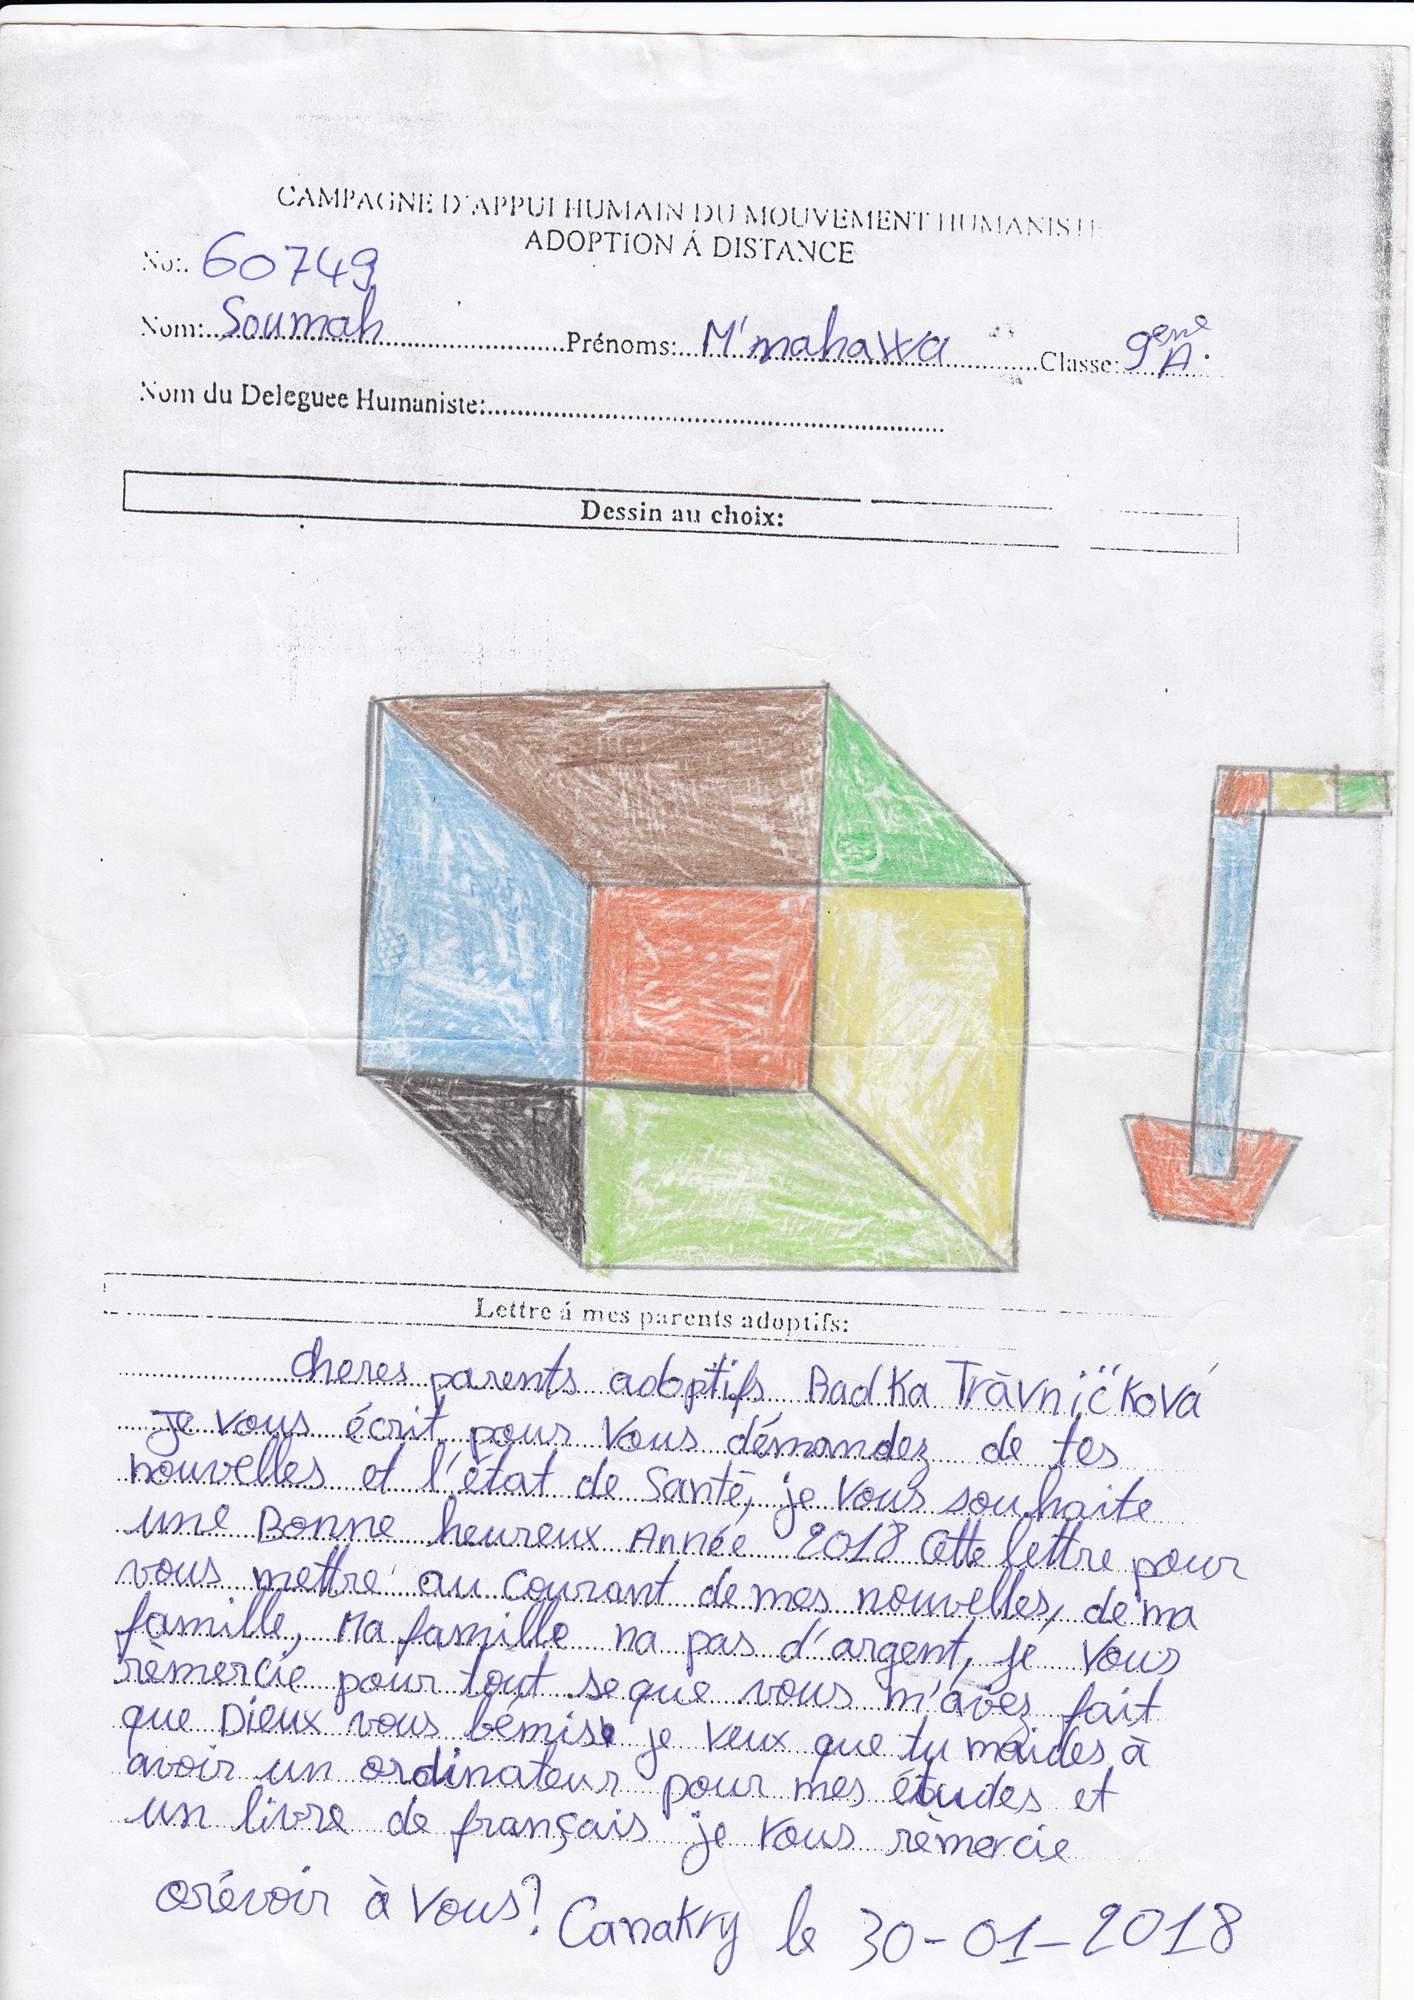 CAMPAGNE D'APPUI HUMAIN DU MOUVEMENT HUMANISTE
ADOPTION Á DISTANCE
No: 60749
Nom: Soumah Prénoms: M'mahawa Classe: 9eme A
Nom du Deleguee Humaniste:
Dessin au choix:
Lettre á mes parents adoptifs:
cheres parents adoptifs Radka Tràvničková
Je vous écrit pour vous démandez de tes
nouvelles et l'état de Santé, je vous souhaite
une Bonne heureux Année 2018 Cette lettre pour
vous mettre au courant de mes nouvelles, de ma
famille, Ma famille na pas d'argent, je vous
rèmercie pour tout se que vous m'avez fait
que Dieux vous bémis je veux que tu maides à
avoir un ordinateur pour mes études et
un livre de français je vous rèmercie
orévoir à vous? Canakry le 30-01-2018